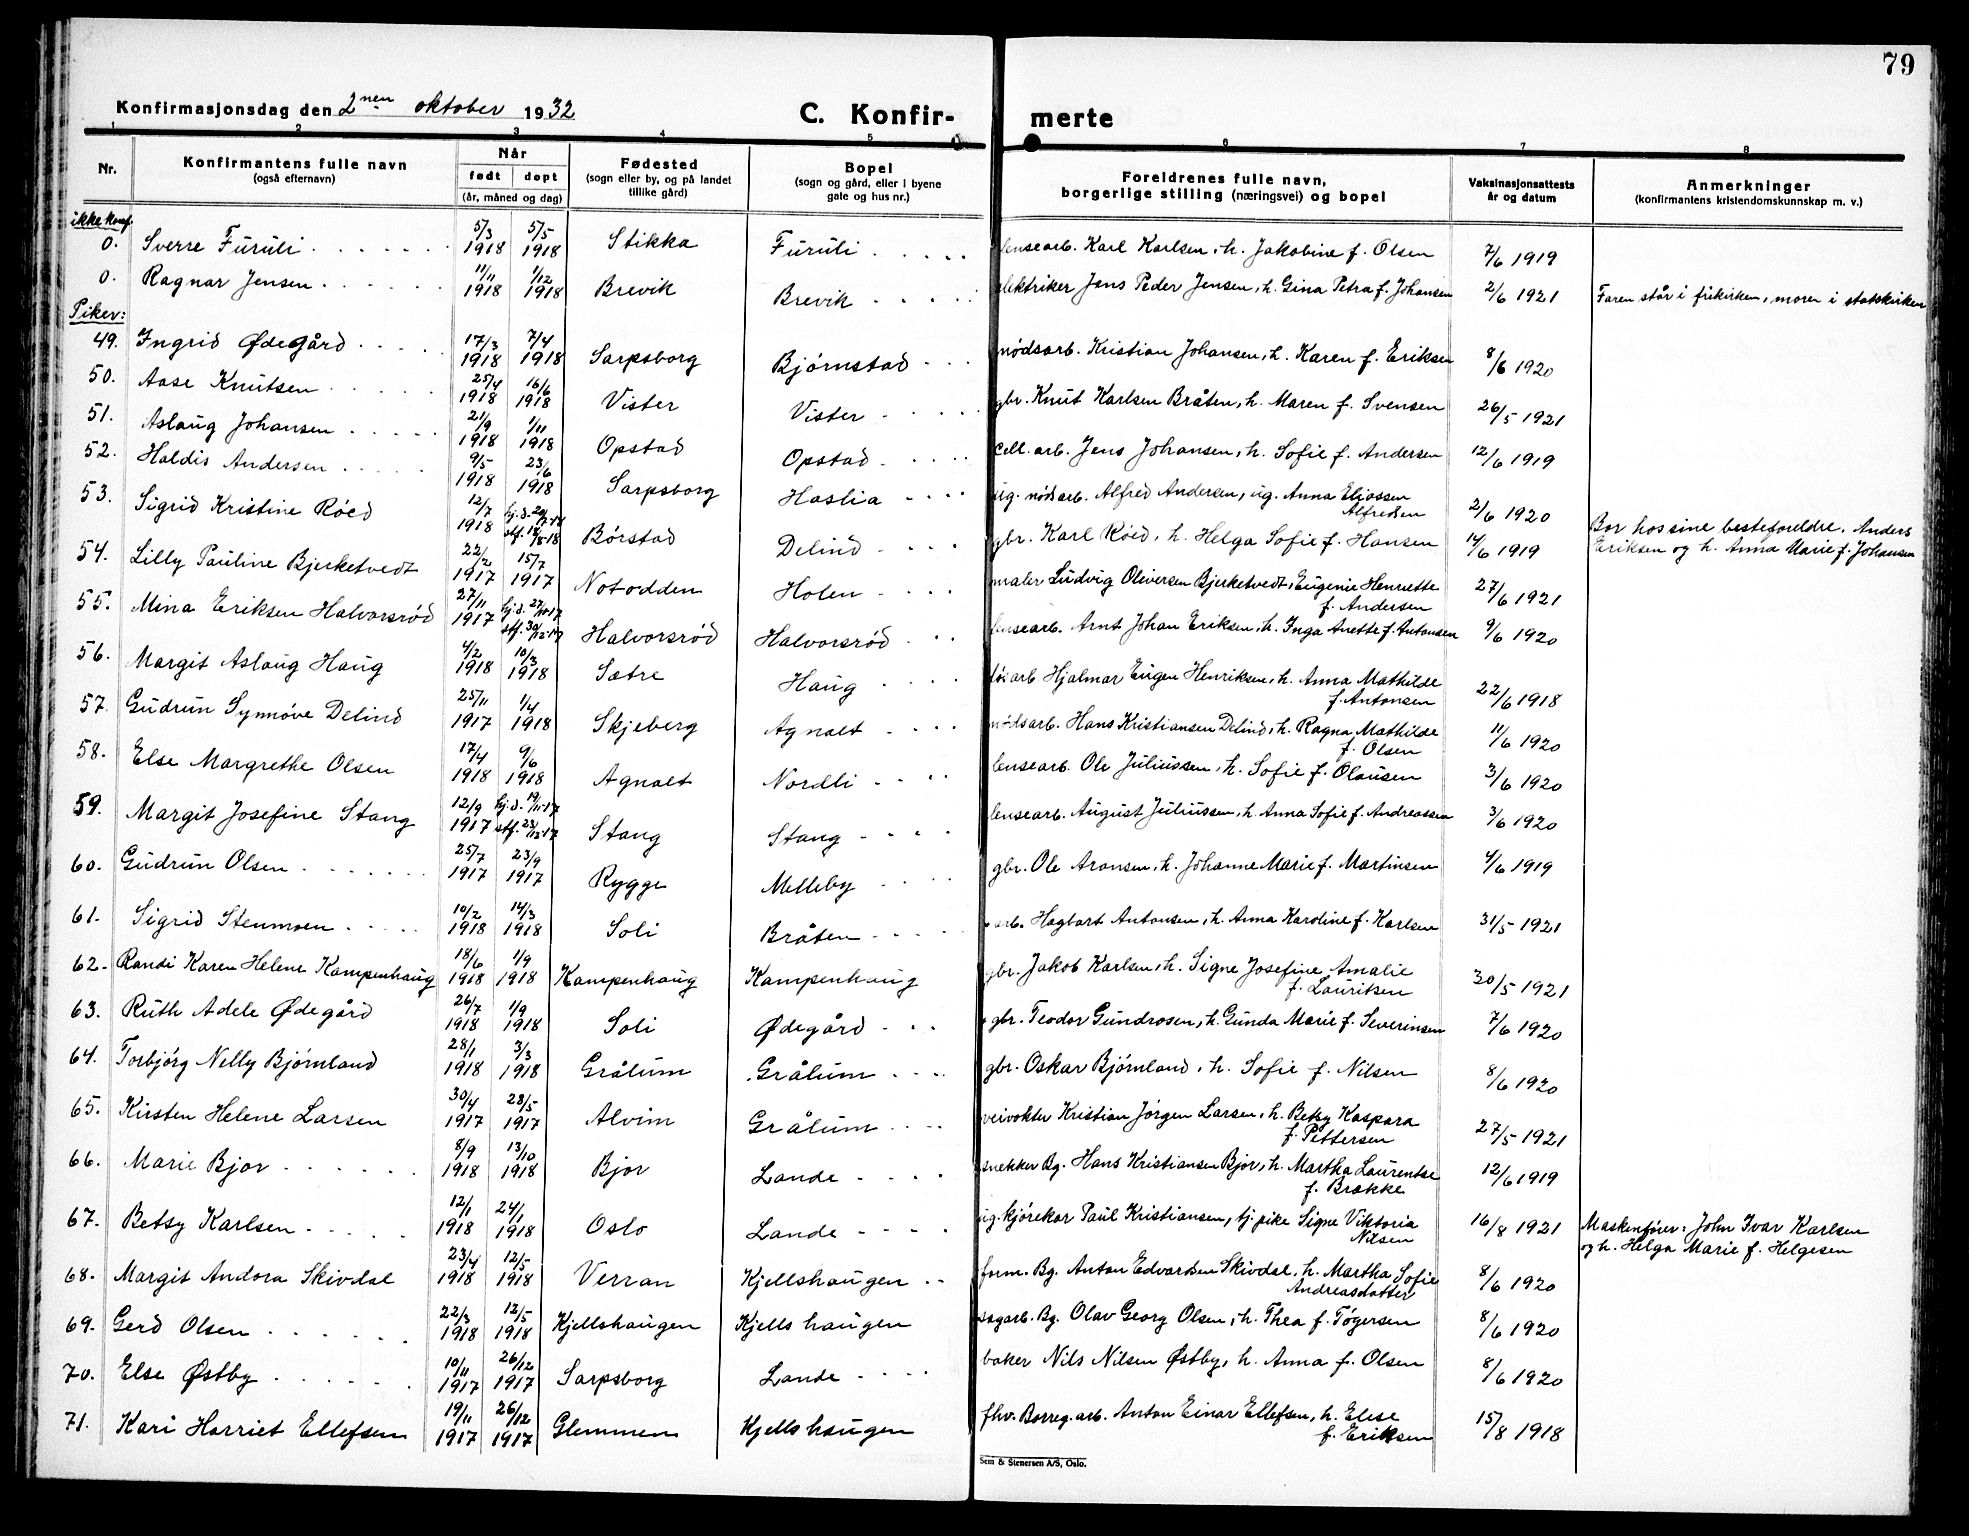 79
Konfirmasjonsdag den 2nen oktober 1932 C. Konfir- merte
1 2 3 4 5 6 7 8
Nr. Konfirmantens fulle navn (også efternavn) Når født døpt (år, måned og dag) Fødested (sogn eller by, og på landet tillike gård) Bopel (sogn og gård, eller i byene gate og hus nr.) Foreldrenes fulle navn, borgerlige stilling (næringsvei) og bopel Vaksinasjonsattests år og datum Anmerkninger (konfirmantens kristendomskunnskap m. v.)
ikke konf.
0. Sverre Furuli 5/3 1918 5/5 1918 Stikka Furuli lensearb. Karl Karlsen, h. Jakobine f. Olsen 7/6 1919
0. Ragnar Jensen 11/11 1918 1/12 1918 Brevik Brevik elektriker Jens Peder Jensen, h. Gina Petra f. Johansen 2/6 1921 Faren står i frikirken, moren i statskirken
Piker:
49. Ingrid Ødegård 17/3 1918 7/4 1918 Sarpsborg Bjørnstad nødsarb. Kristian Johansen, h. Karen f. Eriksen 8/6 1920
50. Aase Knutsen 25/4 1918 16/6 1918 Vister Vister gbr. Knut Karlsen Bråten, h. Maren f. Svensen 26/5 1921
51. Aslaug Johansen 21/9 1918 1/11 1918 Opstad Opstad cell. arb. Jens Johansen, h. Sofie f. Andersen 12/6 1919
52. Haldis Andersen 9/5 1918 23/6 1918 Sarpsborg Haslia ug. nødsarb. Alfred Andersen, ug. Anna Eliassen Alfredsen 2/6 1920
53. Sigrid Kristine Røed 12/7 1918 Børstad Delind gbr. Karl Røed, h. Helga Sofie f. Hansen 14/6 1919 Bor hos sine besteforeldre, Anders Eriksen og h. Anna Marie f. Johansen
54. Lilly Pauline Bjerketvedt 22/2 1917 15/7 1917 Notodden Holen maler Ludvig Oliversen Bjerketvedt, Eugenie Henriette f. Andersen 27/6 1921
55. Mina Eriksen Halvorsrød 27/11 1917 hj.d. 27/11-17 stf. 30/12-17 Halvorsrød Halvorsrød lensearb. Arnt Johan Eriksen, h. Inga Anette f. Antonsen 9/6 1920
56. Margit Aslaug Haug 4/2 1918 10/3 1918 Sætre Haug arb Hjalmar Eugen Henriksen, h. Anna Mathilde f. Antonsen 22/6 1918
57. Gudrun Synnøve Delind 25/11 1917 1/4 1918 Skjeberg Agnalt nødsarb. Hans Kristiansen Delind, h. Ragna Mathilde f. Olsen 11/6 1920
58. Else Margrethe Olsen 17/4 1918 9/6 1918 Agnalt Nordli lensearb. Ole Juliussen, h. Sofie f. Olausen 3/6 1920
59. Margit Josefine Stang 12/9 1917 hj.d. 19/11-17 stf. 23/12-17 Stang Stang lensearb. August Juliussen, h. Anna Sofie f. Andreassen 3/6 1920
60. Gudrun Olsen 25/7 1917 23/9 1917 Rygge Melleby gbr. Ole Aronsen, h. Johanne Marie f. Martinsen 4/6 1919
61. Sigrid Stenmoen 10/2 1918 14/3 1918 Soli Bråten arb. Hagbart Antonsen, h. Anna Karoline f. Karlsen 31/5 1921
62. Randi Karen Helene Kampenhaug 18/6 1918 1/9 1918 Kampenhaug Kampenhaug gbr. Jakob Karlsen, h. Signe Josefine Amalie f. Lauritsen 30/5 1921
63. Ruth Adele Ødegård 26/7 1918 1/9 1918 Soli Ødegård gbr. Teodor Gundrosen, h. Gunda Marie f. Severinsen 7/6 1920
64. Torbjørg Nelly Bjørnland 28/1 1918 3/3 1918 Grålum Grålum gbr. Oskar Bjørnland, h. Sofie f. Nilsen 8/6 1920
65. Kirsten Helene Larsen 30/4 1917 28/5 1917 Alvim Grålum veivokter Kristian Jørgen Larsen, h. Betsy Kaspara f. Pettersen 27/5 1921
66. Marie Bjor 8/9 1918 13/10 1918 Bjor Lande snekker Bg. Hans Kristiansen Bjor, h. Martha Laurentse f. Brække 12/6 1919
67. Betsy Karlsen 12/1 1918 24/1 1918 Oslo Lande ug. kjørekar Paul Kristiansen, tj. pike Signe Viktoria Nilsen 16/8 1921 Maskenfører: John Ivar Karlsen og h. Helga Marie f. Helgesen
68. Margit Andora Skivdal 23/4 1918 12/5 1918 Verran Kjellshaugen form. Bg. Anton Edvardsen Skivdal, h. Martha Sofie Andreasdatter 8/6 1920
69. Gerd Olsen 22/3 1918 12/5 1918 Kjellshaugen Kjellshaugen sagarb. Bg. Olav Georg Olsen, h. Thea f. Tøgersen 8/6 1920
70. Else Østby 10/11 1917 26/12 1917 Sarpsborg Lande baker Nils Nilsen Østby, h. Anna f. Olsen 8/6 1920
71. Kari Harriet Ellefsen 19/11 1917 26/12 1917 Glemmen Kjellshaugen fhv. Borreg. arb. Anton Einar Ellefsen, h. Elise f. Eriksen 15/8 1918
Sem & Stenersen A/S, Oslo.